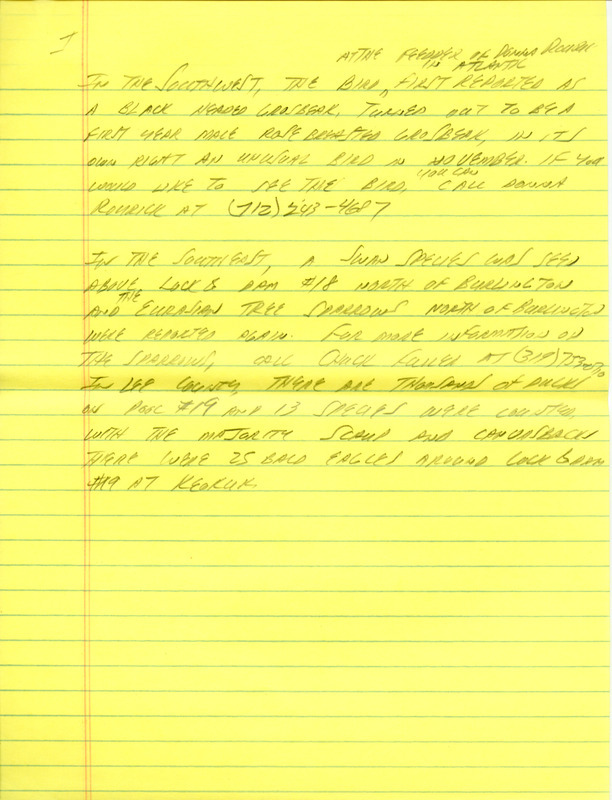 1
AT THE FEEDER OF DONNA
IN ATLANTIC
IN THE SOUTHWEST, THE BIRD, FIRST REPORTED AS
A BLACK HEADED GROSBEAK, TURNED OUT TO BE A
FIRST YEAR MALE ROSE BREASTED GROSBEAK, IN ITS
OWN RIGHT AN UNUSUAL BIRD IN NOVEMBER. IF YOU
YOU CAN
WOULD LIKE TO SEE THE BIRD, CALL DONNA
AT (712) 243-4687
IN THE SOUTHEAST, A SWAN SPECIES WAS SEEN
ABOVE LOCK & DAM #18 NORTH OF BURLINGTON
THE
AND EURASIAN TREE SPARROWS NORTH OF BURLINGTON
WERE REPORTED AGAIN. FOR MORE INFORMATION ON
THE SPARROWS, CALL CHUCK FULLER AT (319)
IN LEE COUNTY, THERE ARE THOUSANDS OF DUCKS
ON POOL #19 AND 13 SPECIES WERE COUNTED
WITH THE MAJORITY SCAUP AND CANVASBACKS
THERE WERE 25 BALD EAGLES AROUND LOCK & DAM
#19 AT KEOKUK.